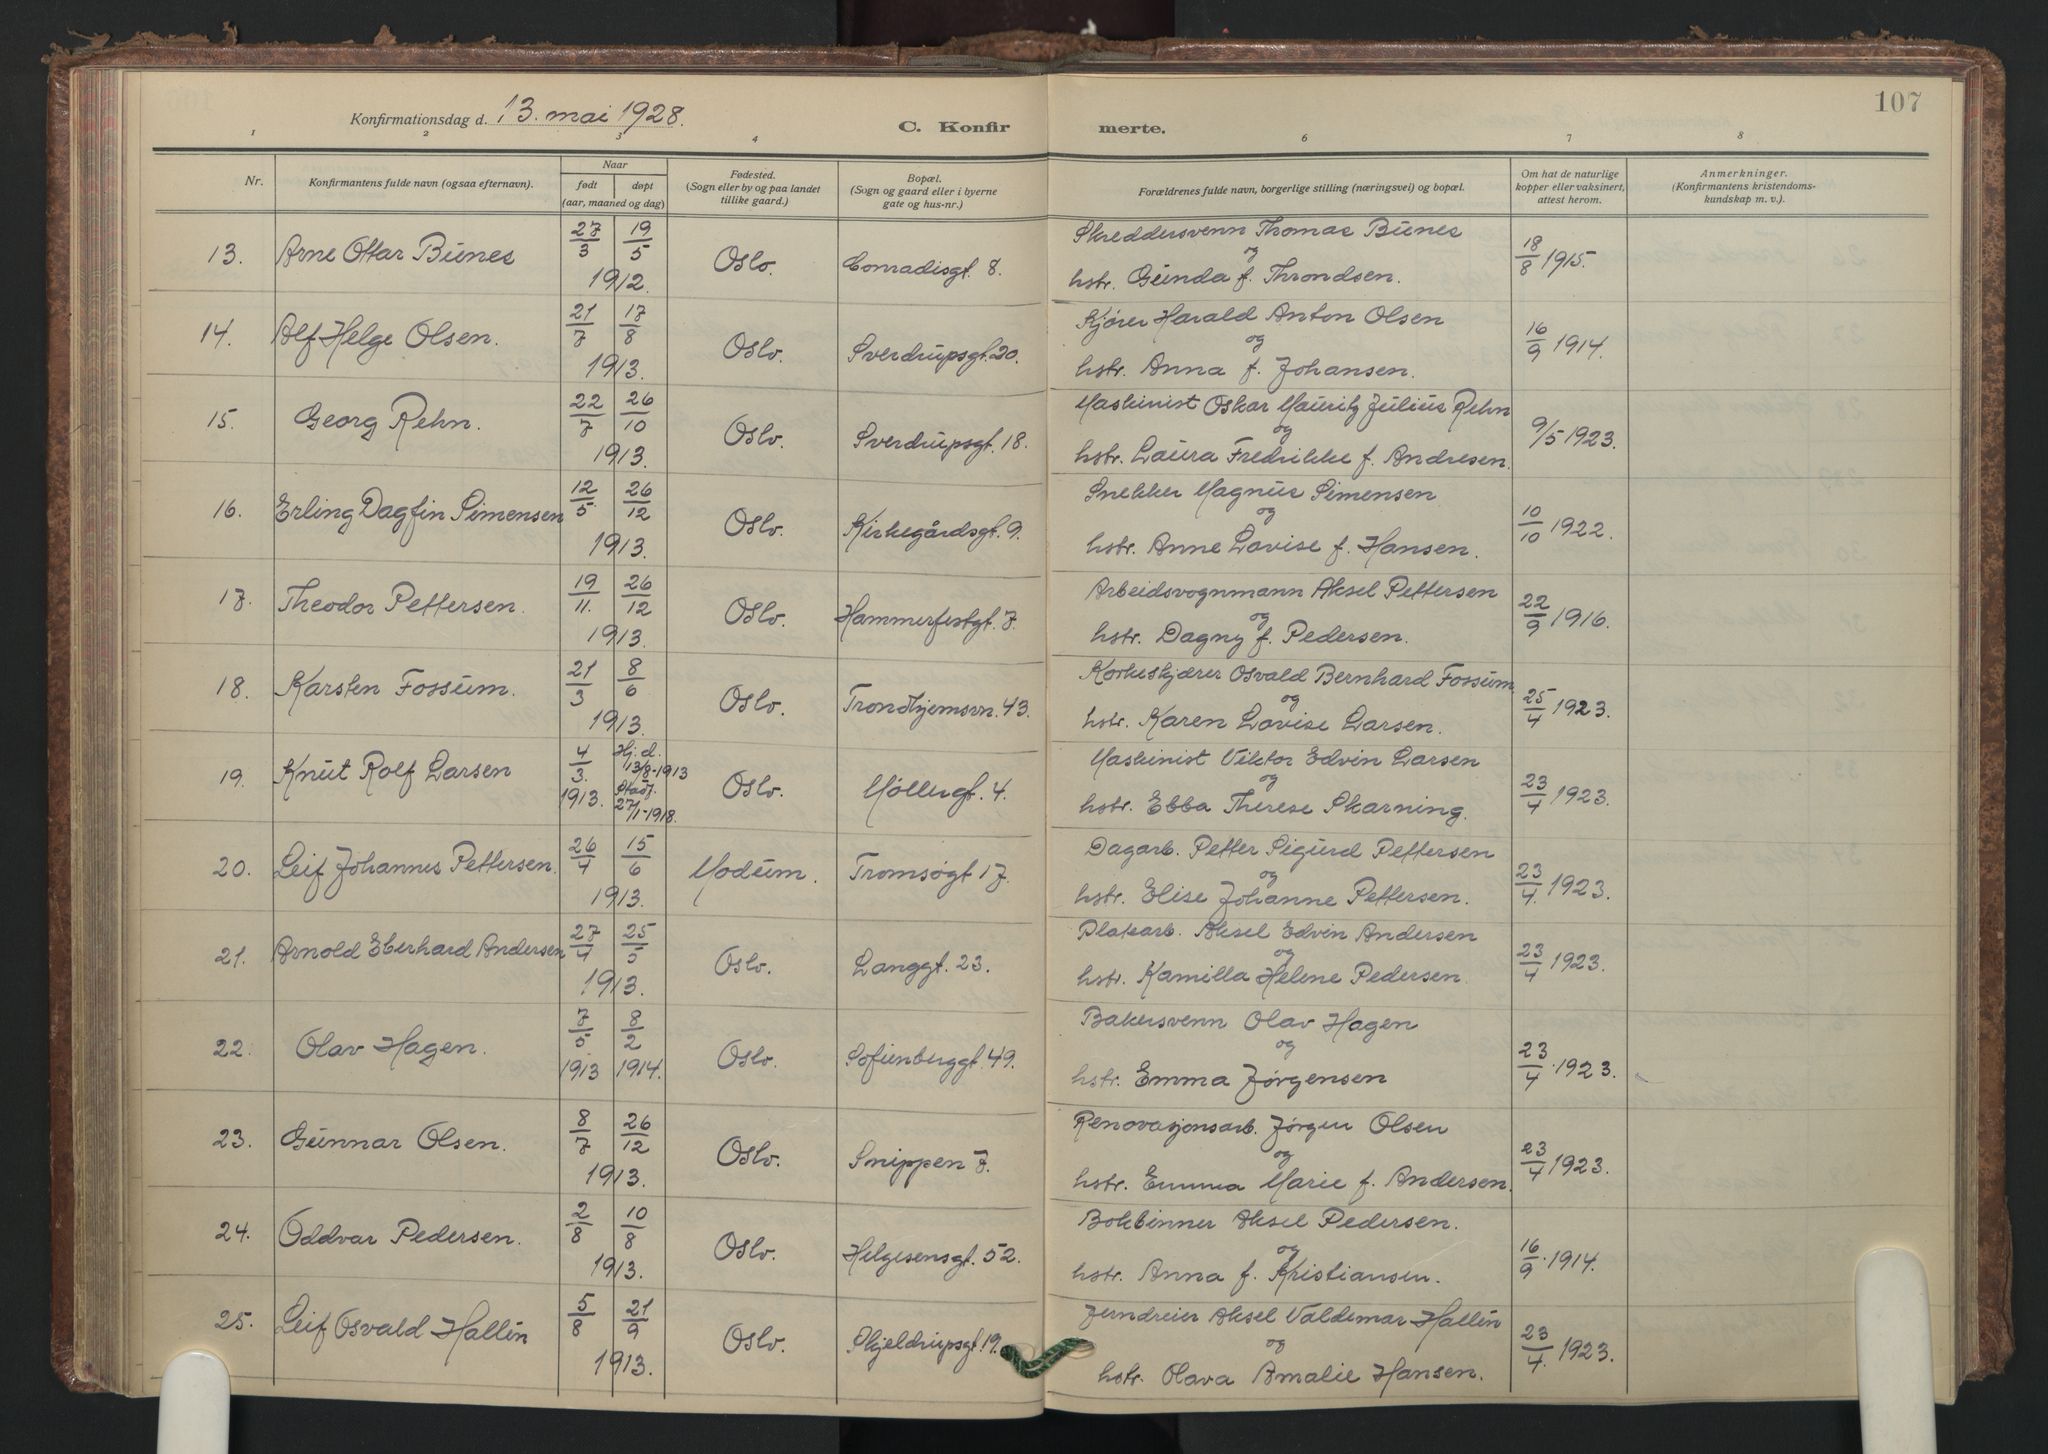 107
Konfirmationsdag d. 13. mai 1928.
C. Konfirmerte.
1 2 3 4 6 7 8
Nr. Konfirmantens fulde navn (ogsaa efternavn). Naar født døpt (aar, maaned og dag) Fødested. (Sogn eller by og paa landet tillike gaard.) Bopæl. (Sogn og gaard eller i byerne gate og hus-nr.) Forældrenes fulde navn, borgerlige stilling (næringsvei) og bopæl. Om hat de naturlige kopper eller vaksinert, attest herom. Anmerkninger. (Konfirmantens kristendoms-kundskap m. v.).
13. Arne Ottar Bünes 27/3 19/5 1912. Oslo. Conradisgt. 8. Skreddersvenn Thomas Bünes og hstr. Günda f. Throndsen. 18/8 1915.
14. Alf Helge Olsen. 21/7 17/8 1913. Oslo. Sverdrupsgt. 20. Kjører Harald Anton Olsen og hstr. Anna f. Johansen. 16/9 1914.
15. Georg Rehn. 22/7 26/10 1913. Oslo. Sverdrupsgt. 18. Maskinist Oskar Mauritz Julius Rehn og hstr. Laura Fredrikke f. Andresen. 9/5 1923.
16. Erling Dagfin Simensen 12/5 26/12 1913. Oslo. Kirkegårdsgt. 9. Snekker Magnus Simensen og hstr. Anne Lovise f. Hansen. 10/10 1922.
17. Theodor Pettersen. 19/11. 26/12 1913. Oslo. Hammerfestgt. 7. Arbeidsvognmann Aksel Pettersen og hstr. Dagny f. Pedersen. 22/9 1916.
18. Karsten Fossum. 21/3 8/6 1913. Oslo. Trondhjemsvn. 43. Korkeskjærer Osvald Bernhard Fossum og hstr. Karen Lovise Larsen. 25/4 1923.
19. Knut Rolf Larsen 4/3. 1913. Hj. d. 13/8-1913 Stadf. 27/1-1918. Oslo. Møllergt. 4. Maskinist Viktor Edvin Larsen og hstr. Ebba Therese Skarning. 23/4 1923.
20. Leif Johannes Pettersen. 26/4 15/6 1913. Modum. Tromsøgt 17. Dagarb. Petter Sigurd Pettersen og hstr. Elise Johanne Pettersen. 23/4. 1923.
21. Arnold Eberhard Andersen 27/4 25/5 1913. Oslo. Langgt. 23. Platearb. Aksel Edvin Andersen og hstr. Kamilla Helene Pedersen. 23/4 1923.
22. Olav Hagen. 7/5 1913 8/2 1914. Oslo. Sofienberggt. 49. Bakersvenn Olav Hagen og hstr. Emma Jørgensen 23/4 1923.
23. Gunnar Olsen. 8/7 26/12 1913. Oslo. Snippen 7. Renovasjonsarb. Jørgen Olsen og hstr. Emma Marie f. Andersen. 23/4 1923.
24. Oddvar Pedersen. 2/8 10/8 1913. Oslo. Helgesensgt. 52. Bokbinner Aksel Pedersen. og hstr. Anna f. Kristiansen. 16/9 1914.
25. Leif Osvald Hallin 5/8 21/9 1913. Oslo. Skjeldrupsgt. 19. Jerndreier Aksel Valdemar Hallin og hstr. Olava Amalie Hansen. 23/4. 1923.